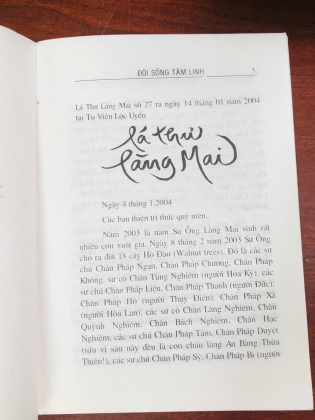 ĐỜI SỐNG TÂM LINH
Lá Thư Làng Mai số 27 ra ngày 14 tháng 01 năm 2004
tại Tu Viện Lộc Uyển
lá thư
làng Mai
Ngày 4 tháng 1.2004
Các bạn thiện tri thức quý mến,
Năm 2003 là năm Sư Ông Làng Mai sinh rất
nhiều con xuất gia. Ngày 8 tháng 2 năm 2003 Sư Ông
cho ra đời 18 cây Hồ Đào (Walnut trees). Đó là các sư
chú Chân Pháp Ngạn, Chân Pháp Chương, Chân Pháp
Không, sư cô Chân Tùng Nghiêm (người Hoa Kỳ), các
sư chú Chân Pháp Liệu, Chân Pháp Thanh (người Đức),
Chân Pháp Hộ (người Thụy Điển), Chân Pháp Xả
(người Hòa Lan), các sư cô Chân Lăng Nghiêm, Chân
Quỳnh Nghiêm, Chân Bách Nghiêm, Chân Hạc
Nghiêm, các sư chú Chân Pháp Tâm, Chân Pháp Duyệt
(sáu vị sau này đều là con cháu làng An Bằng Thừa
Thiên!), các sư chú Chân Pháp Sỹ, Chân Pháp Bi (người